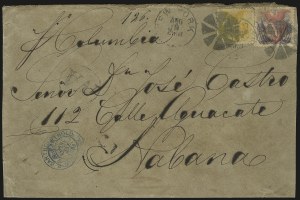 p Columbia
Señor Dn José Castro
112 Calle Aguacate
Habana